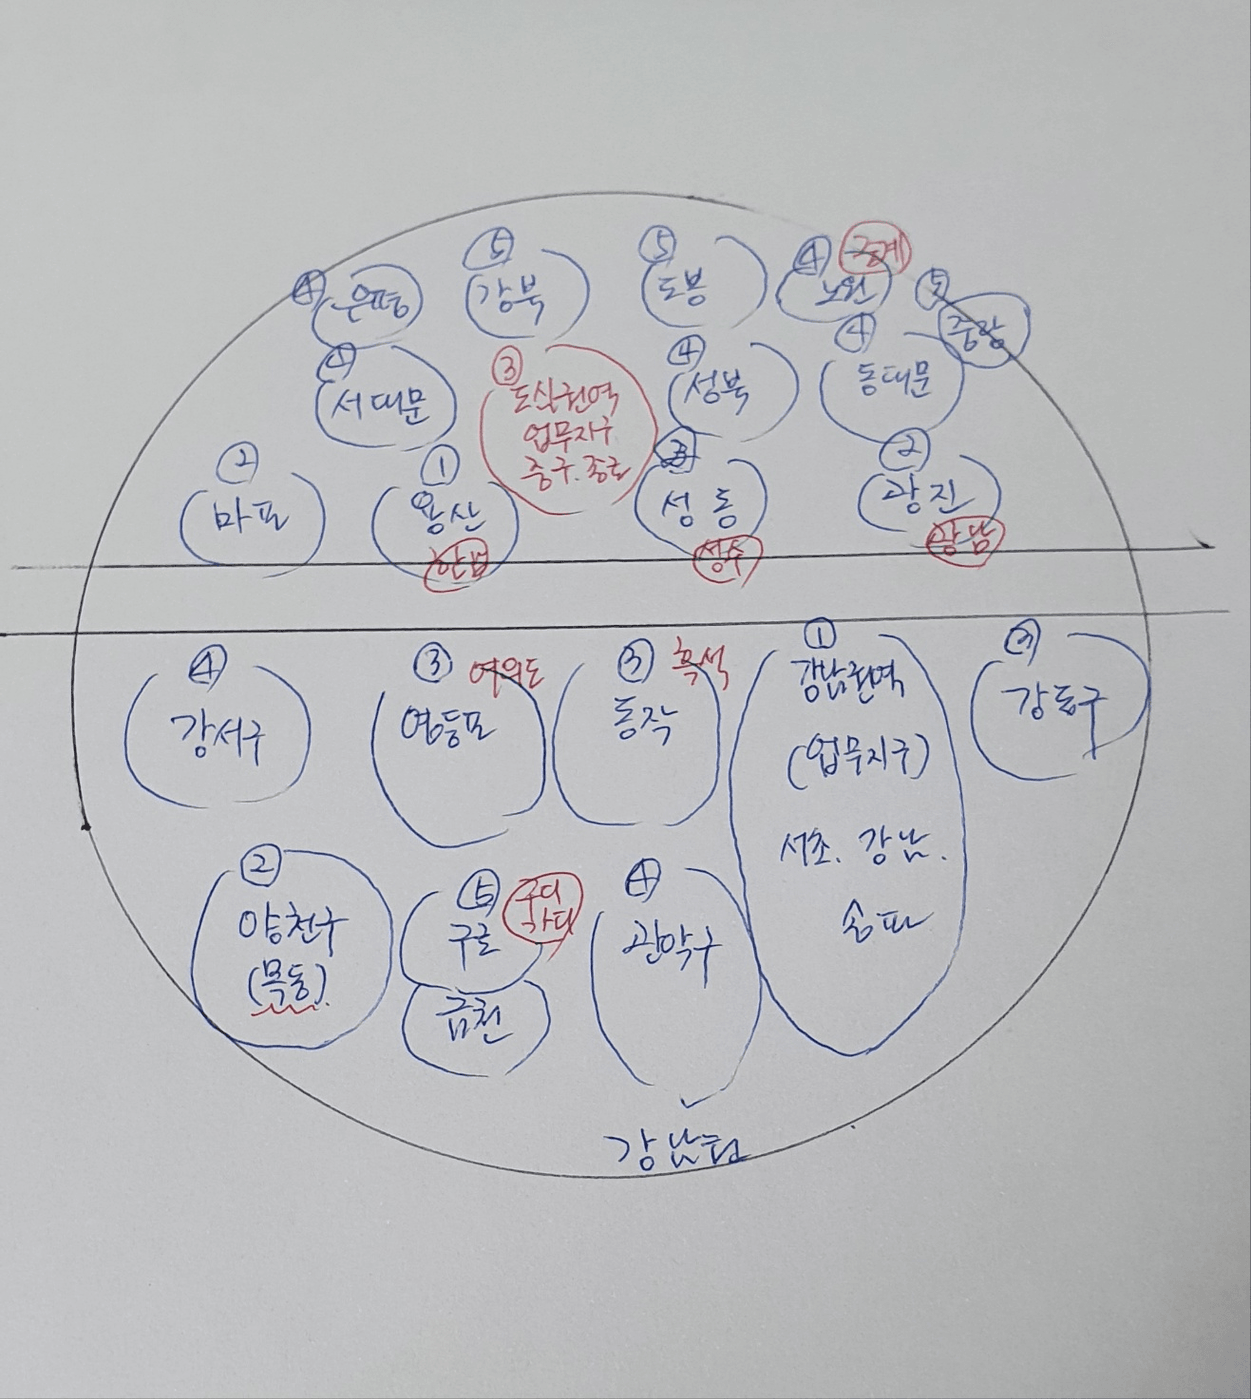 ④
은평
⑤
강북
⑤
도봉
④
중계
노원
⑤
중랑
④
서대문
③
도심권역
업무지구
중구.종로
④
성북
④
동대문
②
마포
①
용산
한남
성동
성수
②
광진
광남
④
강서구
③ 여의도
영등포
③ 흑석
동작
①
강남권역
(업무지구)
서초. 강남.
송파
강동구
②
양천구
(목동).
⑤
구디
가디
구로
금천
④
관악구
강남권